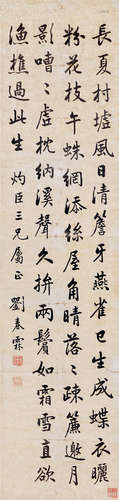 長夏村墟風日清簷牙燕雀已生成蝶衣曬
粉花枝午蛛網添絲屋角晴落落疎簾邀月
影嘈嘈虛枕納溪聲久拚兩鬢如霜雪直欲
漁樵過此生 灼臣三兄屬正 劉春霖